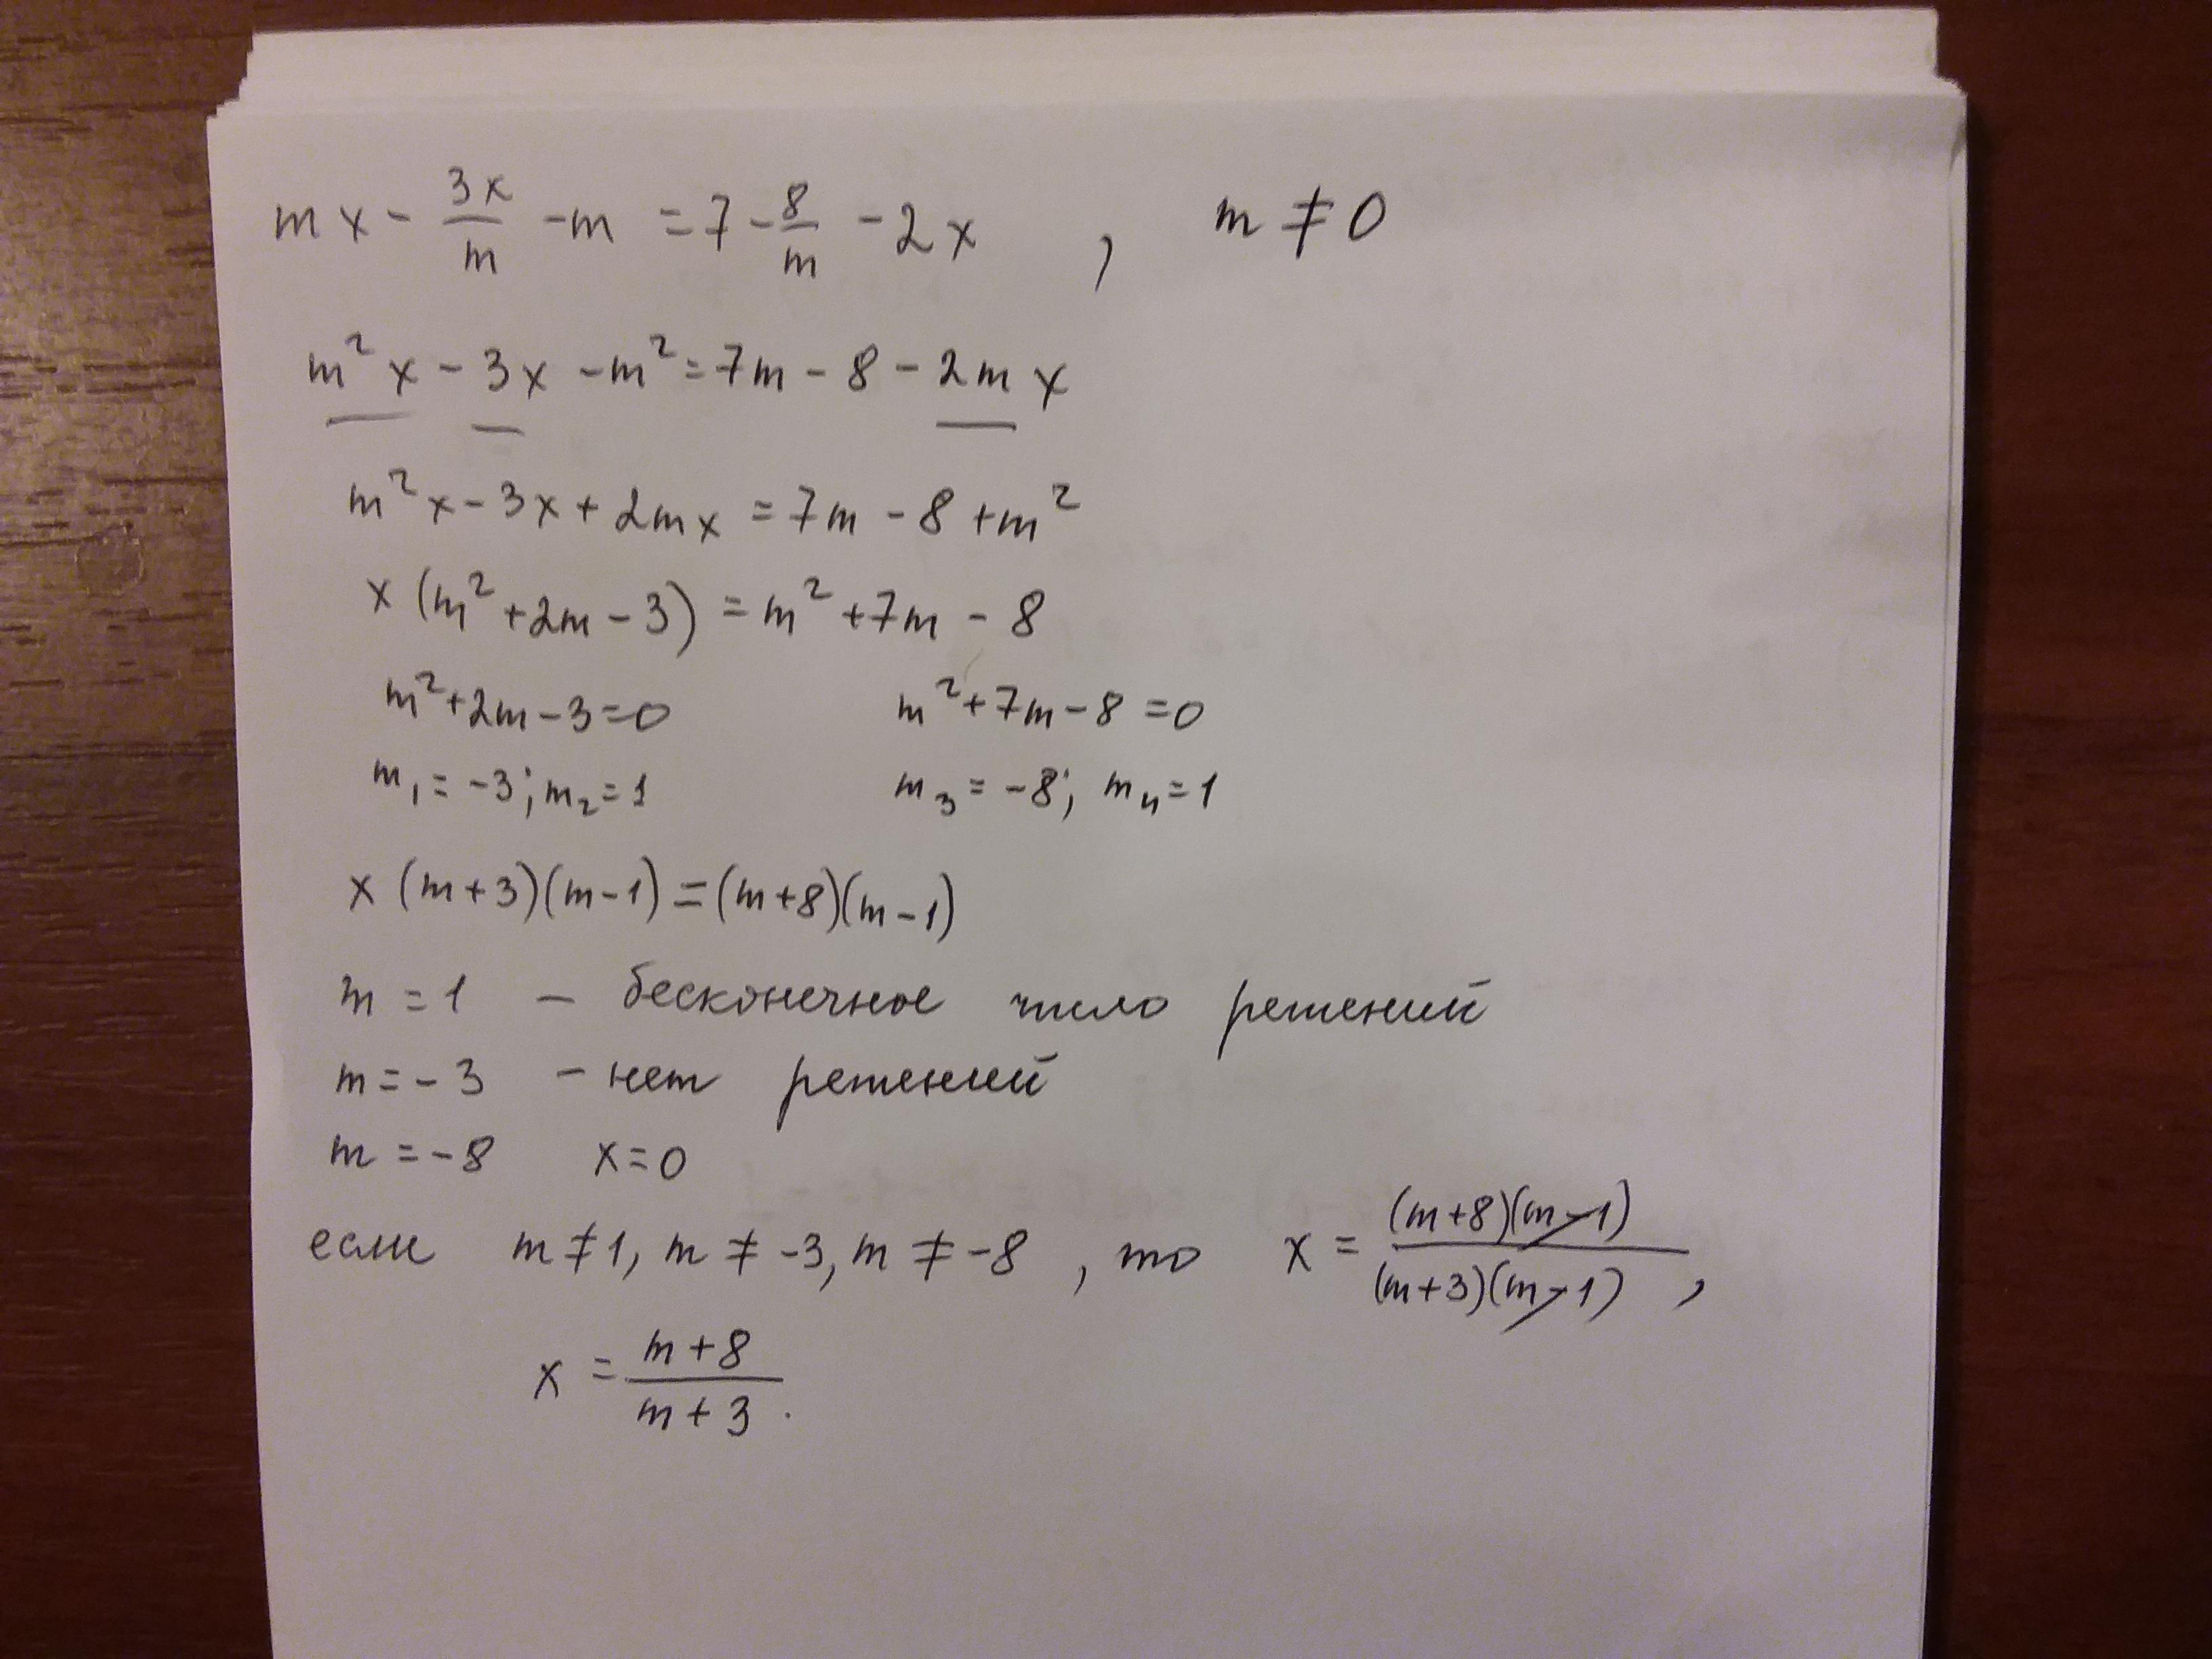 mx - 3x/m - m = 7 - 8/m - 2x , m ≠ 0
m²x - 3x - m² = 7m - 8 - 2mx
m²x - 3x + 2mx = 7m - 8 + m²
x (m² + 2m - 3) = m² + 7m - 8
m² + 2m - 3 = 0 m² + 7m - 8 = 0
m₁ = -3; m₂ = 1 m₃ = -8; m₄ = 1
x (m+3)(m-1) = (m+8)(m-1)
m = 1 - бесконечное число решений
m = -3 - нет решений
m = -8 x = 0
если m ≠ 1, m ≠ -3, m ≠ -8 , то x = (m+8)(m-1)/(m+3)(m-1) ,
x = m+8/m+3 .